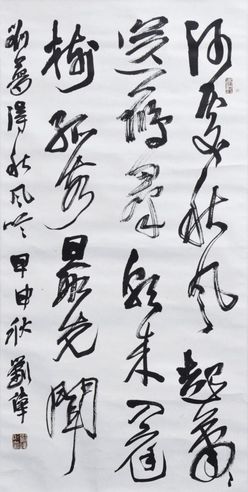 何處秋風起蕭〻
送鴈羣朝來入庭
樹孤客最先聞
劉禹錫秋風吟 甲申秋 劉